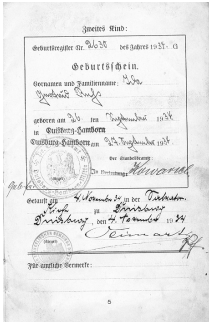 Zweites Kind:
Geburtsregister Nr. 2630 des Jahres 1934
Geburtsschein.
Vornamen und Familienname: Ida
geboren am 26 ten September 1934
in Duisburg-Hamborn
Duisburg-Hamborn am 27. September 1934.
Der Standesbeamte
In Vertretung: Kowarik
Getauft am 4. November 34 in der
zu Duisburg
Duisburg, den 4. November 1934
Für amtliche Vermerke:
5